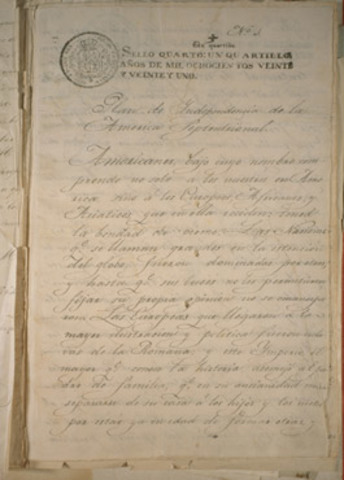 Un quartillo
SELLO QUARTO: UN QUARTILLO,
AÑOS DE MIL OCHOCIENTOS VEINTE
Y VEINTE Y UNO.
Plan de Independencia de la
America Septentrional.
Americanos, bajo cuyo nombre com
prendo no solo á los nacidos en Ame
rica, sino á los Europeos, Africanos, y
Asiaticos que en ella residen: tened
la bondad de oirme. Las Naciones
q.e se llaman grandes en la extension
del globo, fueron dominadas por otras,
y hasta q.e sus luces no les permitieron
fijar su propia opinion no se emancipa
ron. Las Europeas que llegaron á la
mayor ilustracion y politica fueron escla
vas de la Romana; y este Imperio, el
mayor q.e conoce la historia, asemejó al pa
dre de familia, q.e en su ancianidad mira
separarse de su casa á los hijos y los nietos
por estar ya en edad de formar otras, y